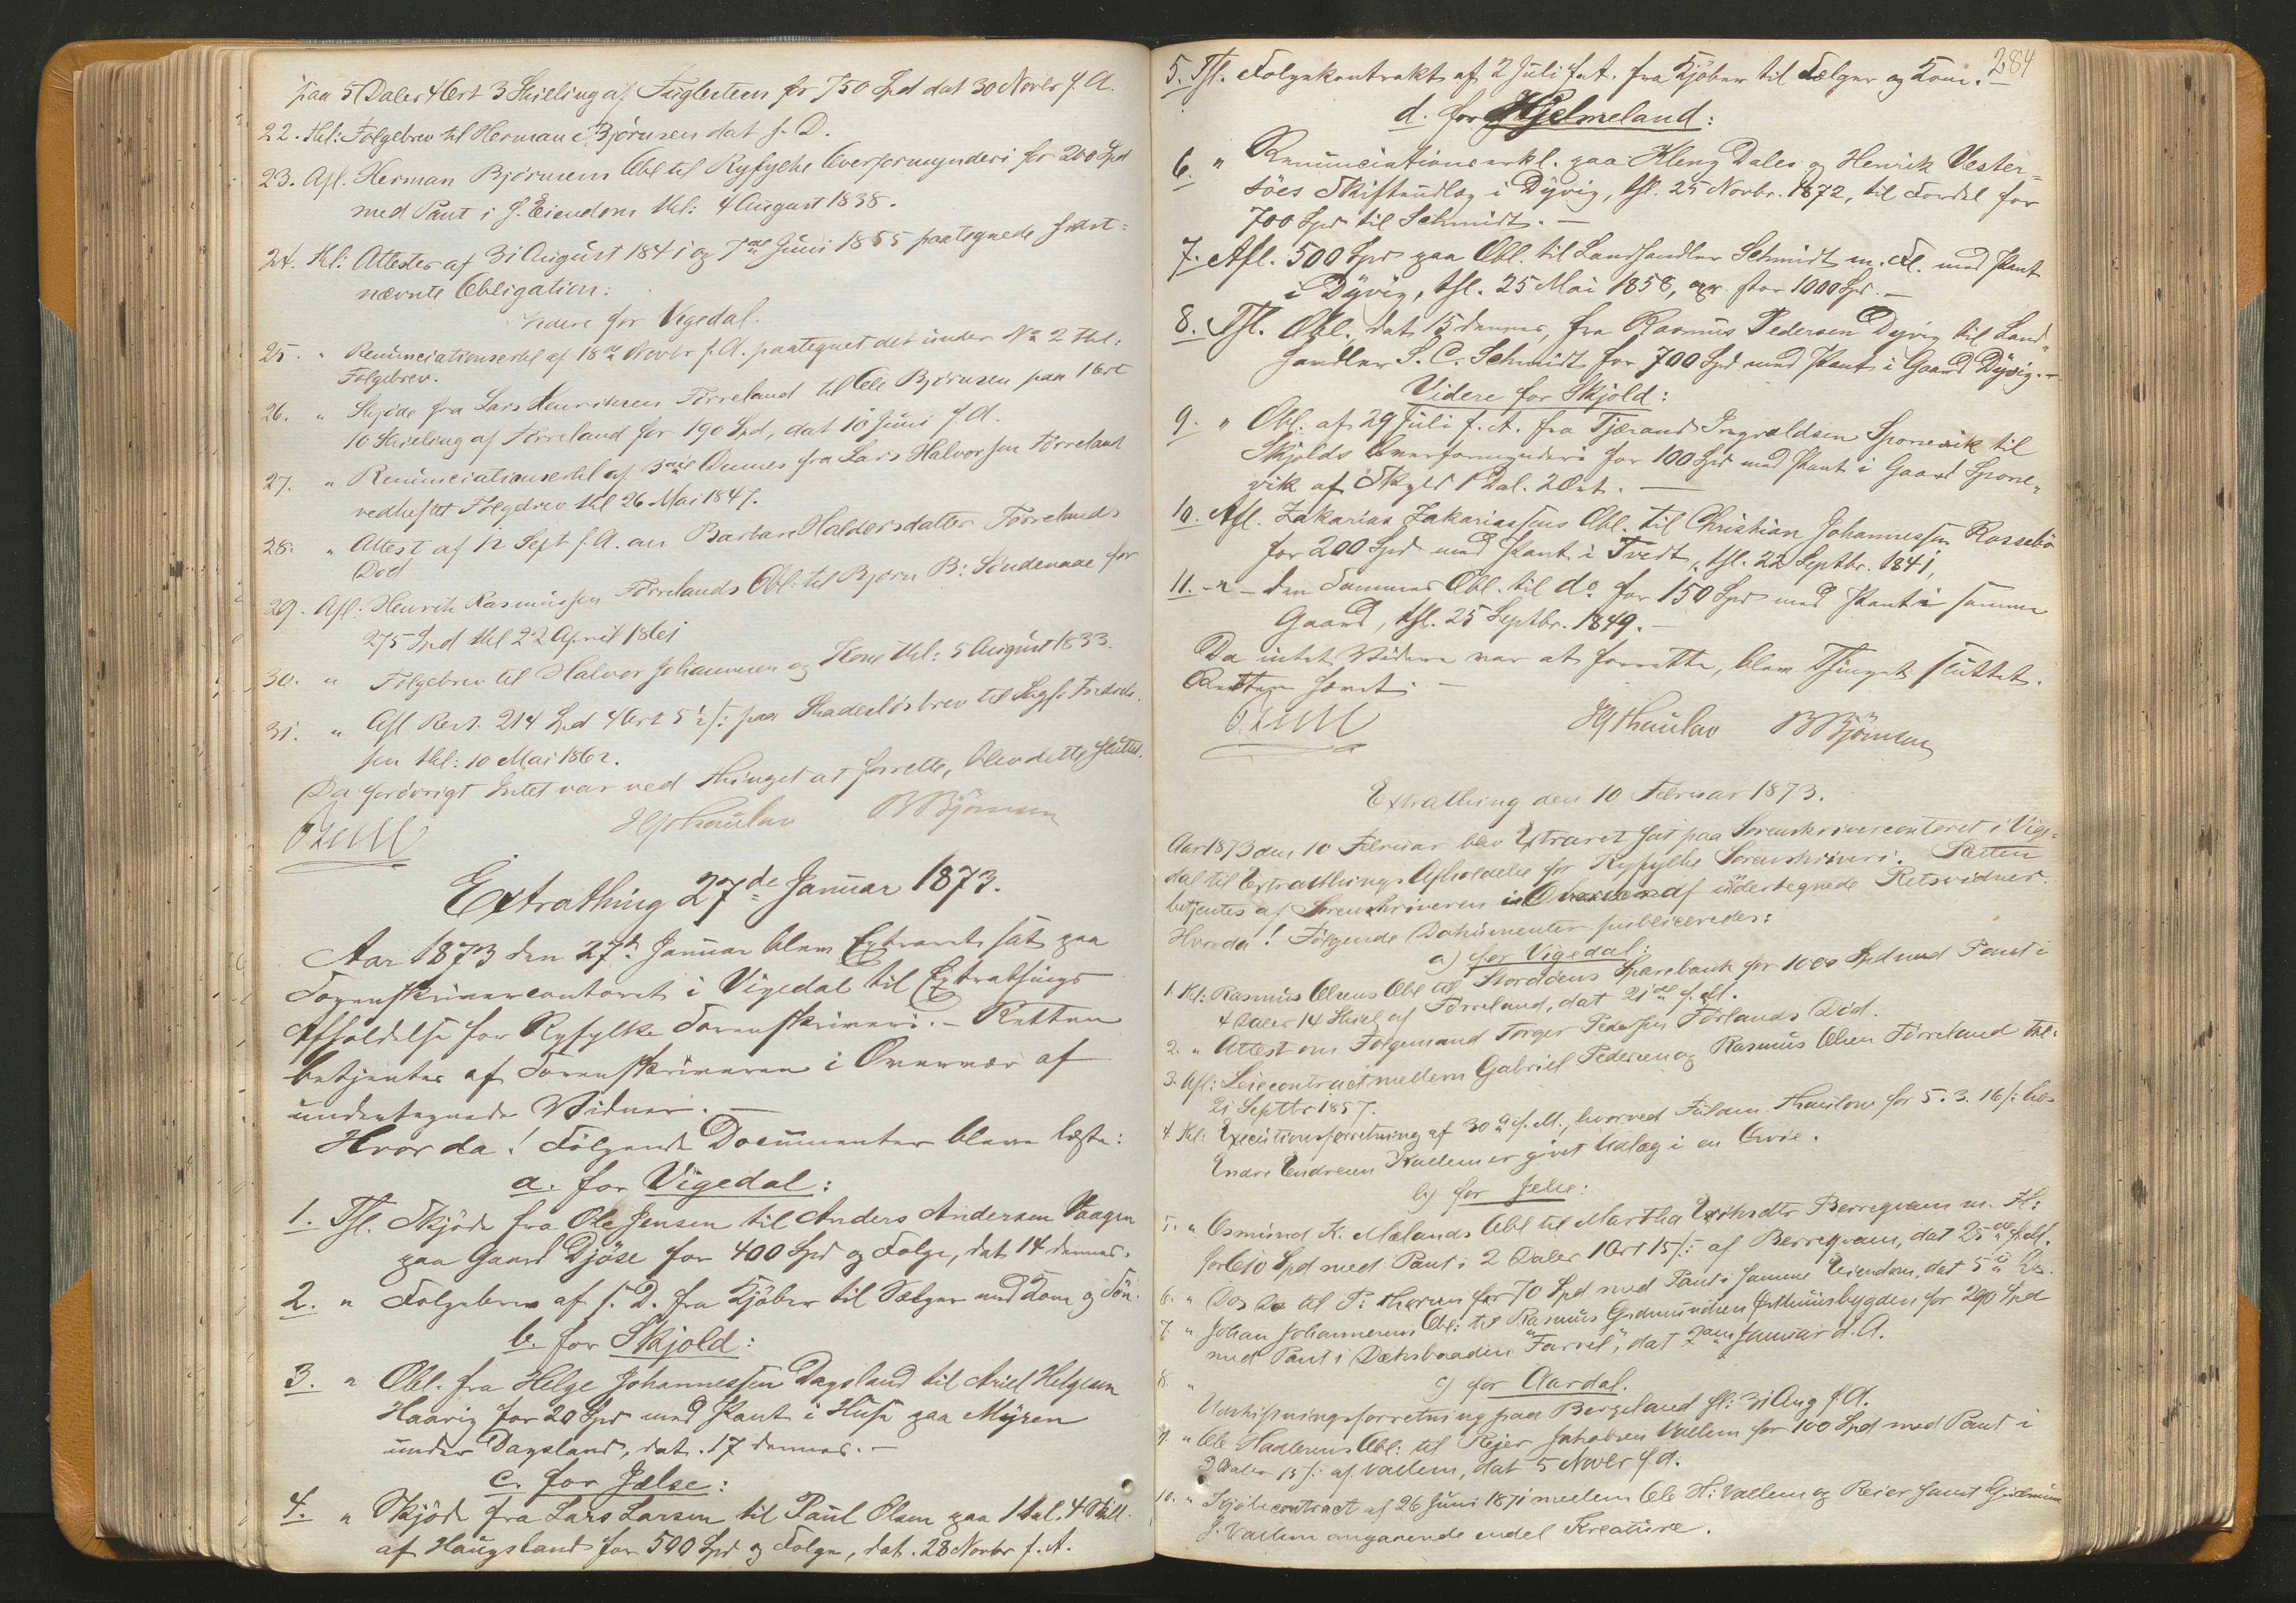 paa 5 Daler 4 Ort 3 Skilling af Fuglesteen for 750 Spd dat 30 Novbr f. A.
22. Thl: Følgebrev til Herman E. Bjørnsen dat s. D.
23. Afl. Herman Bjørnsens Obl til Ryfylke Overformynderi for 200 Spd
med Pant i s. Eiendom thl: 4 August 1838.
24. thl: Attester af 31 August 1841 og 7de Juni 1855 paategnede sidst=
nævnte Obligation:
videre for Vigedal.
25. " Renunciationserkl af 18de Novbr f. A. paategnet det under No 2 thl:
Følgebrev.
26. " Skjøde fra Lars Henriksen Førreland til Ole Bjørnsen paa 1 Ort
10 Skilling af Førreland for 190 Spd, dat 10 Juni f. A.
27. " Renunciationserkl af 3die Dennes fra Lars Halvorsen Førreland
vedheftet Følgebrev thl 26 Mai 1847.
28. " Attest af 12 Sept f. A. om Barbara Haldorsdatter Førrelands
Død
29. Afl: Henrik Rasmussen Førrelands Obl: til Bjørn B: Søndenaae for
275 Spd thl 22 April 1861
30. " Følgebrev til Halvor Johannesen og Kone thl: 5 August 1833.
31. " Afl Rest. 214 Spd 4 Ort 5½ s: paa Skadesløsbrev til
sen thl: 10 Mai 1862.
Da forøvrigt Intet var ved Thinget at forrette, blev dette sluttet.
HJThaulow BBjørnsen
Extrathing 27de Januar 1873.
Aar 1873 den 27de Januar blev Extraret sat paa
Sorenskrivercontoret i Vigedal til Extrathings
Afholdelse for Ryfylke Sorenskriveri. - Retten
betjentes af Sorenskriveren i Overvær af
undertegnede Vidner. -
Hvor da! Følgende Documenter bleve læste:
a. for Vigedal:
1. Thl. Skjøde fra Ole Jensen til Anders Andersen Vaagen
paa Gaard Djöse for 400 Spd og Følge, dat 14 dennes.
2. " Følgebrev af s. D. fra Kjøber til Sælger med Kone og Søn.
b. for Skjold:
3. " Obl. fra Helge Johannessen Dagsland til Aviel Helgesen
Haavig for 20 Spd med Pant i Huse paa Myren
under Dagsland, dat. 17 dennes. -
c. for Jelse:
4. " Skjøde fra Lars Larsen til Paul Olsen paa 1 Dal. 4 Skill.
af Haugsland for 500 Spd og Følge, dat. 28 Novbr f. A.
284
5. Thl. Følgekontrakt af 2 Juli f. A. fra Kjøber til Sælger og Kone. -
d. for Hjelmeland:
6. " Renunciationserkl. paa Kleng Dales og Henrik Vester=
söes Skifteudlæg i Dyvig, thl. 25 Novbr. 1872, til Fordel for
700 Spd til Schmidt. -
7. Afl. 500 Spd paa Obl. til Landhandler Schmidt m. Fl. med Pant
i Dyvig, thl. 25 Mai 1858, opr. stor 1000 Spd. -
8. Thl. Obl., dat 15 dennes, fra Rasmus Pedersen Dyvig til Land=
handler S. C. Schmidt for 700 Spd med Pant i Gaard Dyvig. -
Videre for Skjold:
9. " Obl. af 29 Juli f. A. fra Tjærand Ingvaldsen Sponevik til
Skjolds Overformynderi for 100 Spd med Pant i Gaard Spone=
vik af Skyld 1 Dal. 2 Ort. -
10. Afl. Zakarias Zakariassens Obl. til Christian Johannessen Rossebö
for 200 Spd med Pant i Tvedt, thl. 22 Septbr. 1841,
11. -"- den Sammes Obl. til do. for 150 Spd med Pant i samme
Gaard, thl. 25 Septbr. 1849. -
Da intet Videre var at forrette, blev Thinget sluttet.
Retten hævet. -
HJThaulow BBjørnsen
Extrathing den 10 Februar 1873.
Aar 1873 den 10 Februar blev Extraret sat paa Sorenskrivercontoret i Vige=
dal til Extrathings Afholdelse for Ryfylke Sorenskriveri. Retten
betjentes af Sorenskriveren i Overvær af undertegnede Retsvidner.
Hvorda! Følgende Dokumenter publiceredes:
a) for Vigedal:
1. thl: Rasmus Olsens Obl til Stordøens Sparebank for 1000 Spd med Pant i
4 Daler 14 Skill af Førreland, dat 21de f. M.
2. " Attest om Følgemand Torger Pedersen Førlands Død.
3. Afl: Leiecontract mellem Gabriel Pedersen og Rasmus Olsen Førreland thl:
21 Septbr 1857.
4. thl: Executionsforretning af 30de f. M., hvorved Fuldm. Thaulow for 5. 3. 16 s: hos
Endre Endresen Kvellem er givet Udlæg i en Qvie.
b) for Jelse:
5. " Osmund K. Mælands Obl til Martha Eriksdtr Berreqvam m. Fl:
for 610 Spd med Pant i 2 Daler 1 Ort 15 s: af Berreqvam, dat 25de f. M.
6. " Dos Do til P. for 70 Spd med Pant i samme Eiendom, dat 5te
7. " Johan Johannesens Obl: til Rasmus Gudmundsen Østhuusbygden for 290 Spd
med Pant i Dæksbaaden "Farvel", dat Januar d. A.
8. " c) for Aardal.
Udskiftningsforretning paa Bergeland fl: 31 Aug f. A.
9. " Ole Hadlesens Obl: til Rejer Jakobsen Vallem for 100 Spd med Pant i
3 Daler 15 s: af Vallem, dat 5 Novbr f. A.
10. " Kjøbecontract af 26 Juni 1871 mellem Ole H: Vallem og Reier samt Gudmund
J. Vallem angaaende endel Kreature.